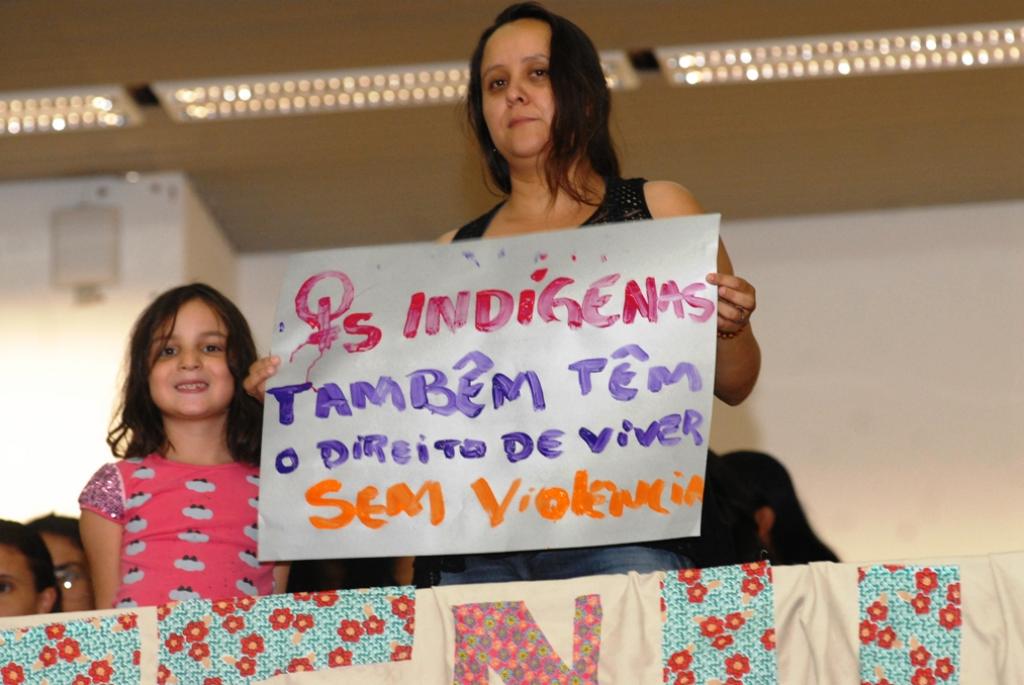 ♀s INDÍGENAS
TAMBÊM TÊM
O DIREITO DE ViVER
SEM VIOlENCiA